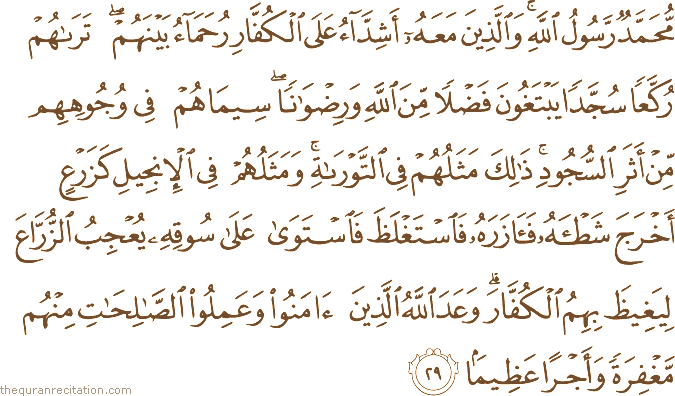 مُّحَمَّدٌ رَّسُولُ ٱللَّهِ ۚ وَٱلَّذِينَ مَعَهُۥٓ أَشِدَّآءُ عَلَى ٱلْكُفَّارِ رُحَمَآءُ بَيْنَهُمْ ۖ تَرَىٰهُمْ
رُكَّعًا سُجَّدًا يَبْتَغُونَ فَضْلًا مِّنَ ٱللَّهِ وَرِضْوَٰنًا ۖ سِيمَاهُمْ فِى وُجُوهِهِم
مِّنْ أَثَرِ ٱلسُّجُودِ ۚ ذَٰلِكَ مَثَلُهُمْ فِى ٱلتَّوْرَىٰةِ ۚ وَمَثَلُهُمْ فِى ٱلْإِنجِيلِ كَزَرْعٍ
أَخْرَجَ شَطْـَٔهُۥ فَـَٔازَرَهُۥ فَٱسْتَغْلَظَ فَٱسْتَوَىٰ عَلَىٰ سُوقِهِۦ يُعْجِبُ ٱلزُّرَّاعَ
لِيَغِيظَ بِهِمُ ٱلْكُفَّارَ ۗ وَعَدَ ٱللَّهُ ٱلَّذِينَ ءَامَنُوا۟ وَعَمِلُوا۟ ٱلصَّٰلِحَٰتِ مِنْهُم
مَّغْفِرَةً وَأَجْرًا عَظِيمًۢا ٢٩
thequranrecitation.com